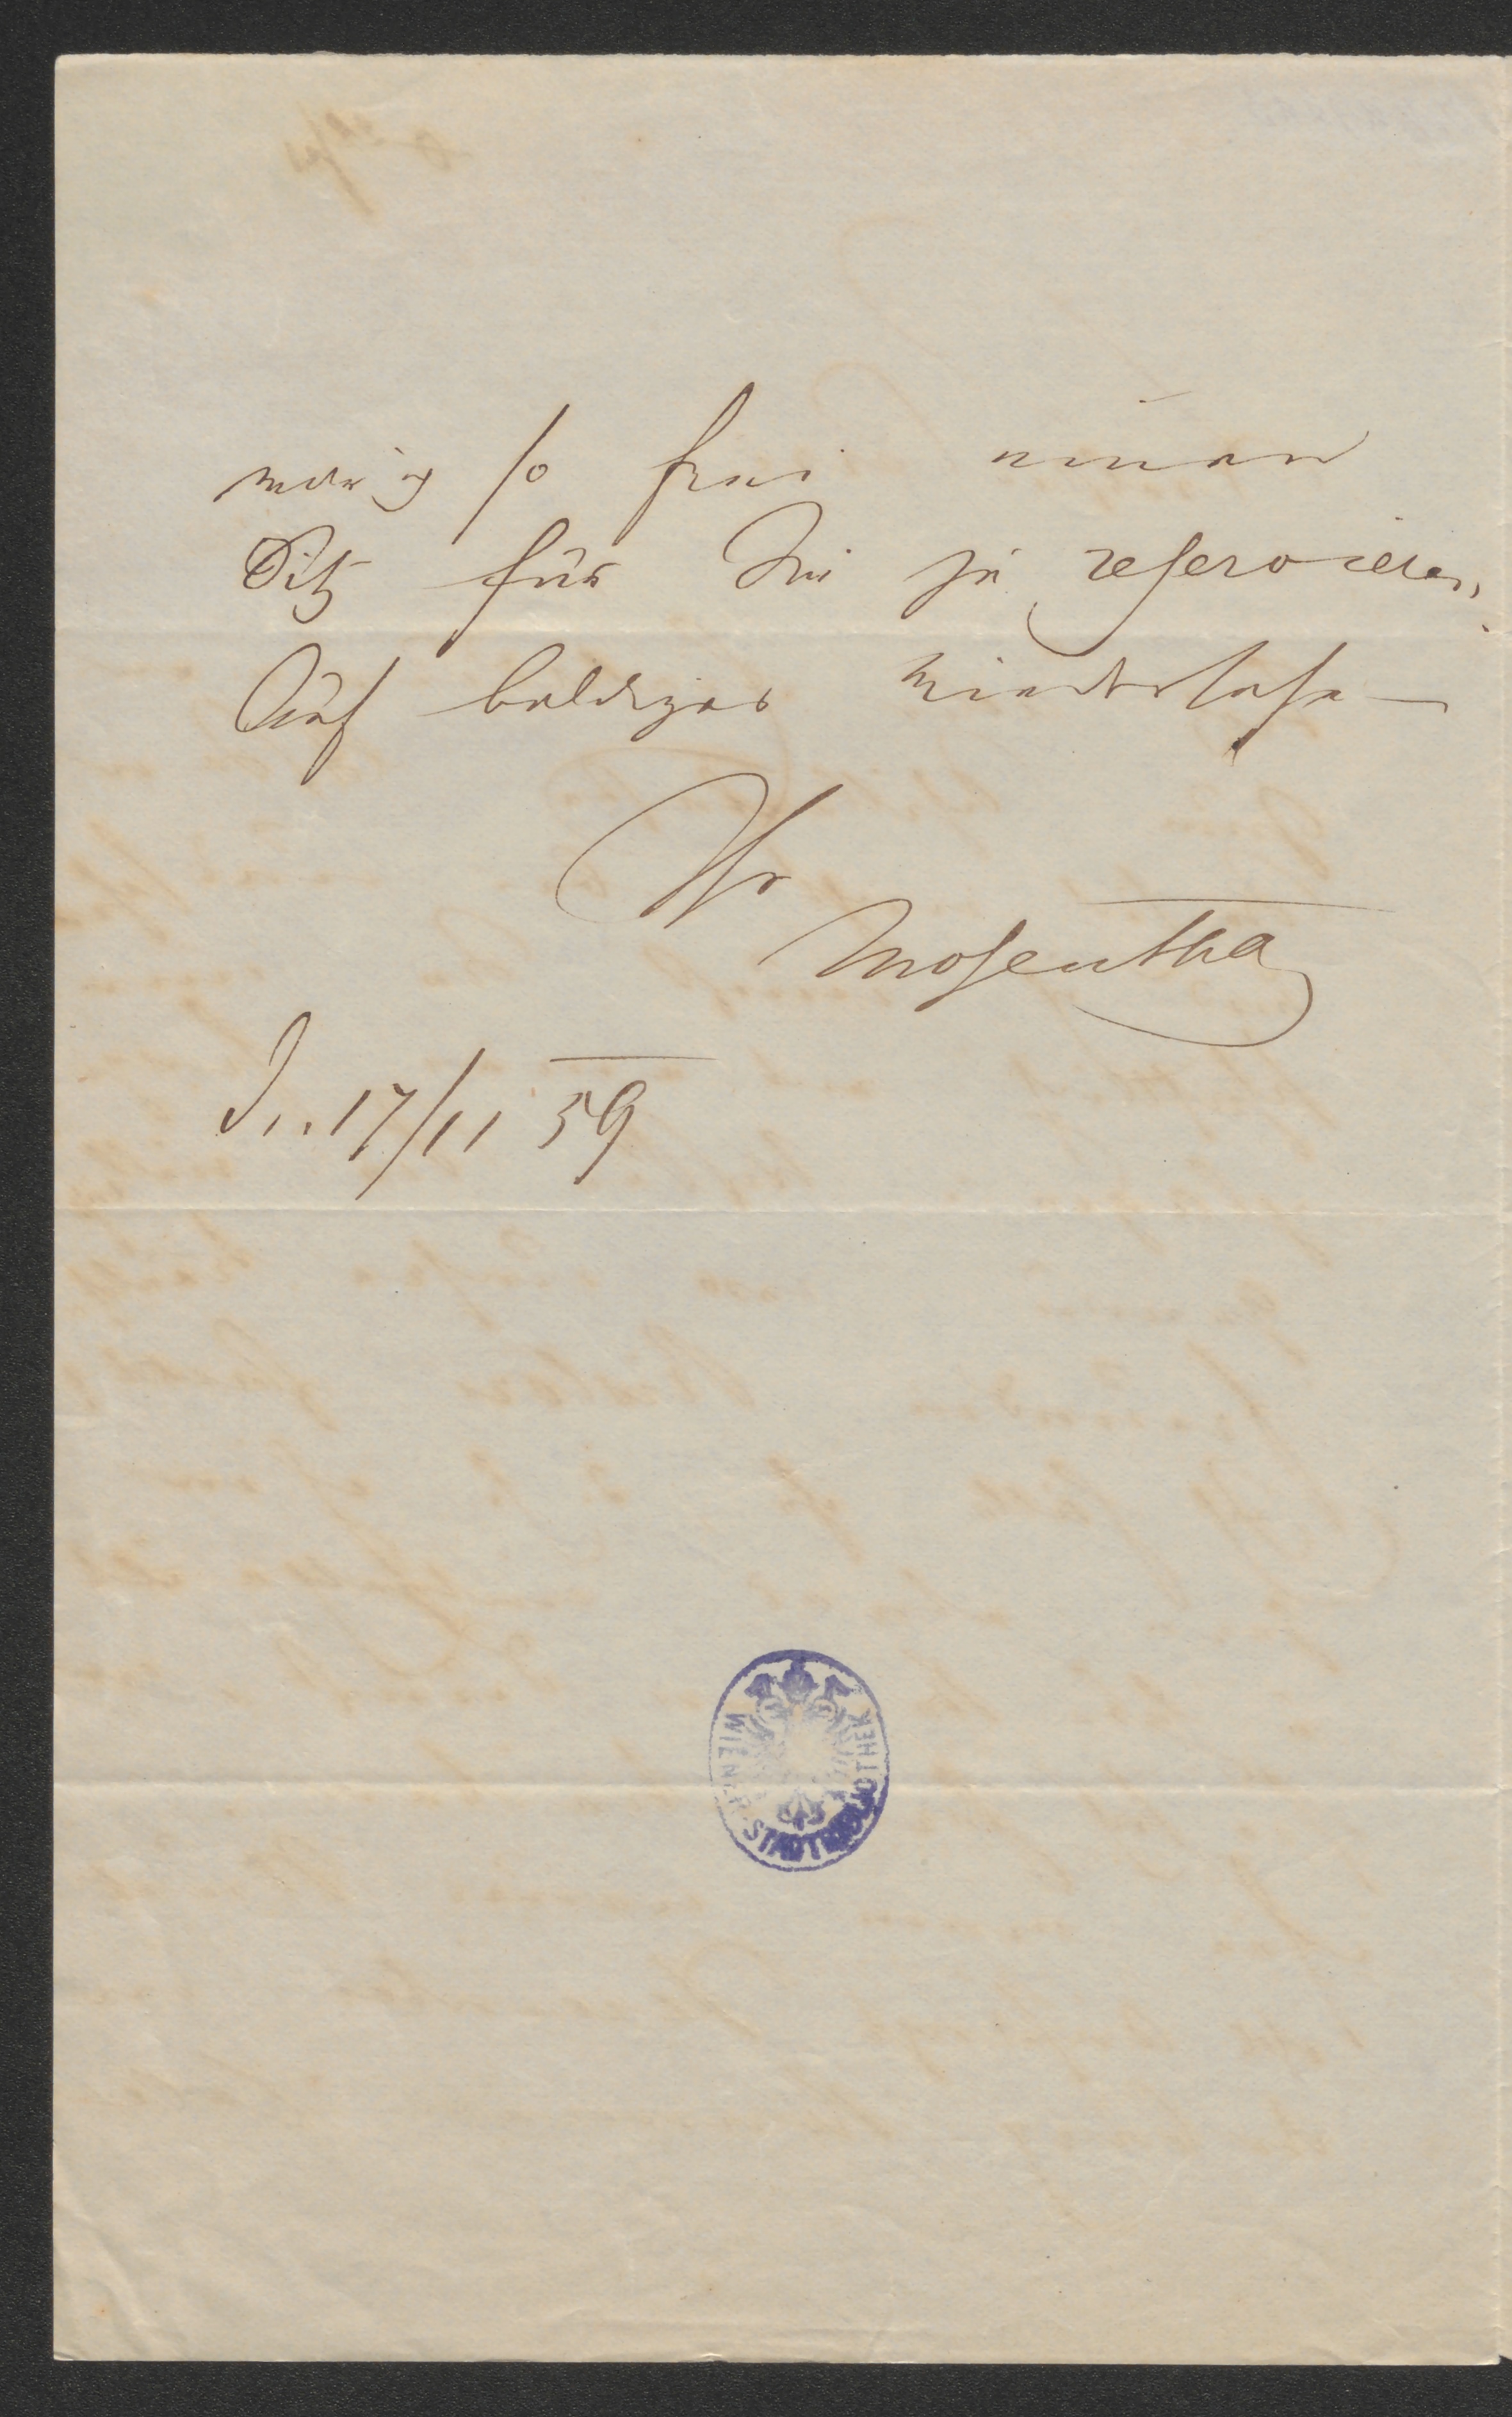 war ich so frei einen
Sitz für Sie zu reserviren,
Auf baldiges Wiedersehen
Ihr
Mosenthal
17/11 59
WIENER STADTBIBLIOTHEK